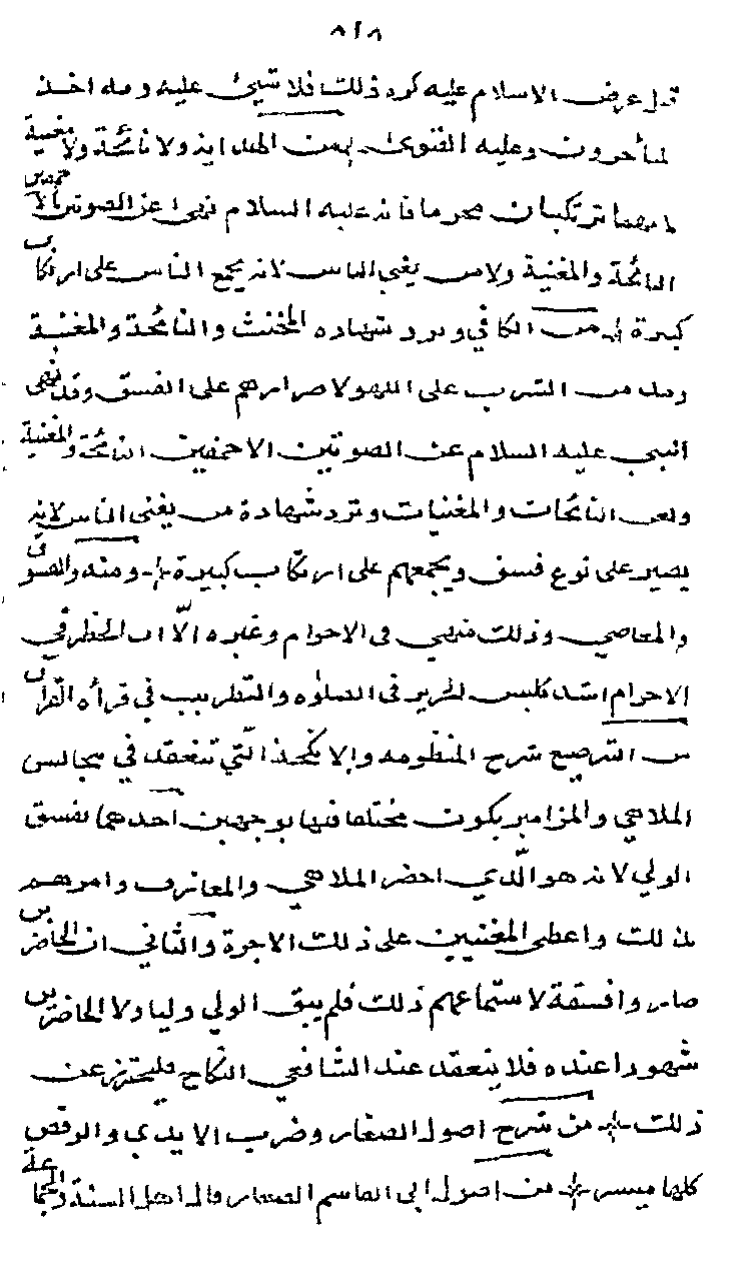 ٨٢٨
قبل عرض الاسلام عليه كره ذلك فلا شيئ عليه ومنه اخذ
المتأخرون وعليه الفتوى من الهداية ولا نائحة ولا مغنية
لانهما ترتكبان محرما فانه عليه السلام نهى عن الصوتين الاحمقين
النائحة والمغنية ولا من يغني الناس لانه يجمع الناس على ارتكاب
كبيرة من الكافي ويرد شهاده المخنث والنائحة والمغنية
ومدمن الشرب على اللهو لاصرارهم على الفسق وقد نهى
النبي عليه السلام عن الصوتين الاحمقين النائحة والمغنية
ولعن النائحات والمغنيات وترد شهادة من يغنى الناس لانه
يصير على نوع فسق ويجمعهم على ارتكاب كبيرة ومنه والفسوق
والمعاصي وذلك منهي فى الاحرام وغيره الّا ان الحظر في
الاحرام اشد كلبس الحرير فى الصلوه والتطريب في قرأه القرأن
من الترصيع شرح المنظومه والانكحة الّتي تنعقد في مجالس
الملاهي والمزامير يكون مختلفا فيها بوجهين احدهما يفسق
الولي لانه هو الّذي احضر الملاهي والمعازف وامرهم
بذلك واعطى المغنيين على ذلك الاجرة والثاني ان الحاضرين
صاروا فسقة لاستماعهم ذلك فلم يبق الولي وليا ولا الحاضرين
شهودا عنده فلا ينعقد عند الشافعي النكاح فليحترز عن
ذلك من شرح اصول الصفار وضرب الايدي والرقص
كلها ميسر من اصول ابى القاسم الصفار قال اهل السنة والجماعة